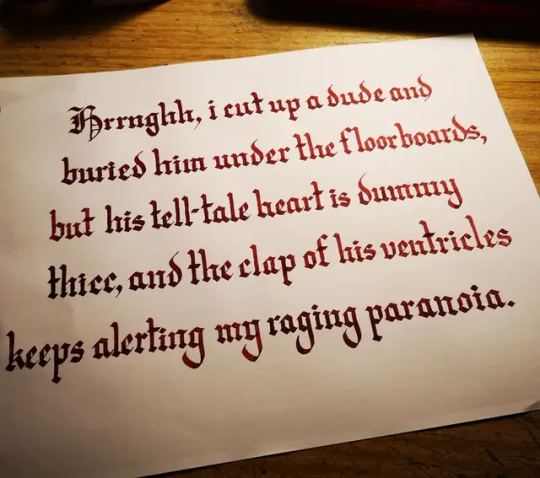 Hrrnghh, i cut up a dude and
buried him under the floorboards,
but his tell-tale heart is dummy
thicc, and the clap of his ventricles
keeps alerting my raging paranoia.